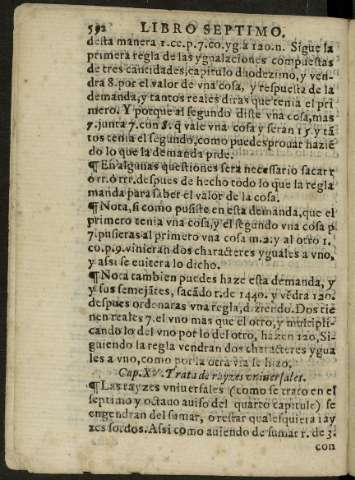 592 LIBRO SEPTIMO.
desta manera 1.ce.p.7.co.yg.a 120.n. Sigue la
primera regla de las ygualaciones compuestas
de tres cantidades, capitulo duodezimo, y ven-
dra 8. por el valor de vna cosa, y respuesta de la
demanda, y tantos reales diras que tenia el pri
mero. Y porque al segundo diste vna cosa, mas
7. junta 7. con 8. q̃ vale vna cosa y seran 15. y tã
tos tenia el segundo, como puedes prouar hazié
do lo que la demanda pide.
¶En algunas questiones sera necessario sacar r
o rr. o rrr. despues de hecho todo lo que la regla
manda para saber el valor de la cosa.
¶Nota, si como pusiste en esta demanda, que el
primero tenia vna cosa, y el segundo vna cosa p
7. pusieras al primero vna cosa m. 2. y al otro 1.
co. p. 9. vinieran dos characteres yguales a vno,
y assi se euitera lo dicho.
¶Nota tambien puedes haze esta demanda, y
y sus semejãtes, sacãdo r. de 1440. y vẽdrà 120.
despues ordenaras vna regla, diziendo. Dos tie
nen reales 7. el vno mas que el otro, y multipli-
cando lo del vno por lo del otro, hazen 120, Si-
guiendo la regla vendran dos characteres ygua
les a vno, como por la otra via se hizo.
Cap. XV. Trata de rayzes vniuersales.
¶Las rayzes vniuersales (como se trato en el
septimo y octauo auiso del quarto capitulo) se
engendran del sumar, o restar qualesquiera ray
zes sordos. Assi como auiendo de sumar r. de 3.
con